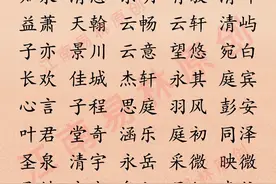 益萧 天翰 云畅 云轩 清屿
子亦 景川 云意 望悠 宛白
长欢 佳城 杰轩 永其 庭宾
心言 子程 思庭 羽风 彭安
叶君 堂奇 涵乐 庭初 同泽
圣泉 清宇 永岳 采微 映微